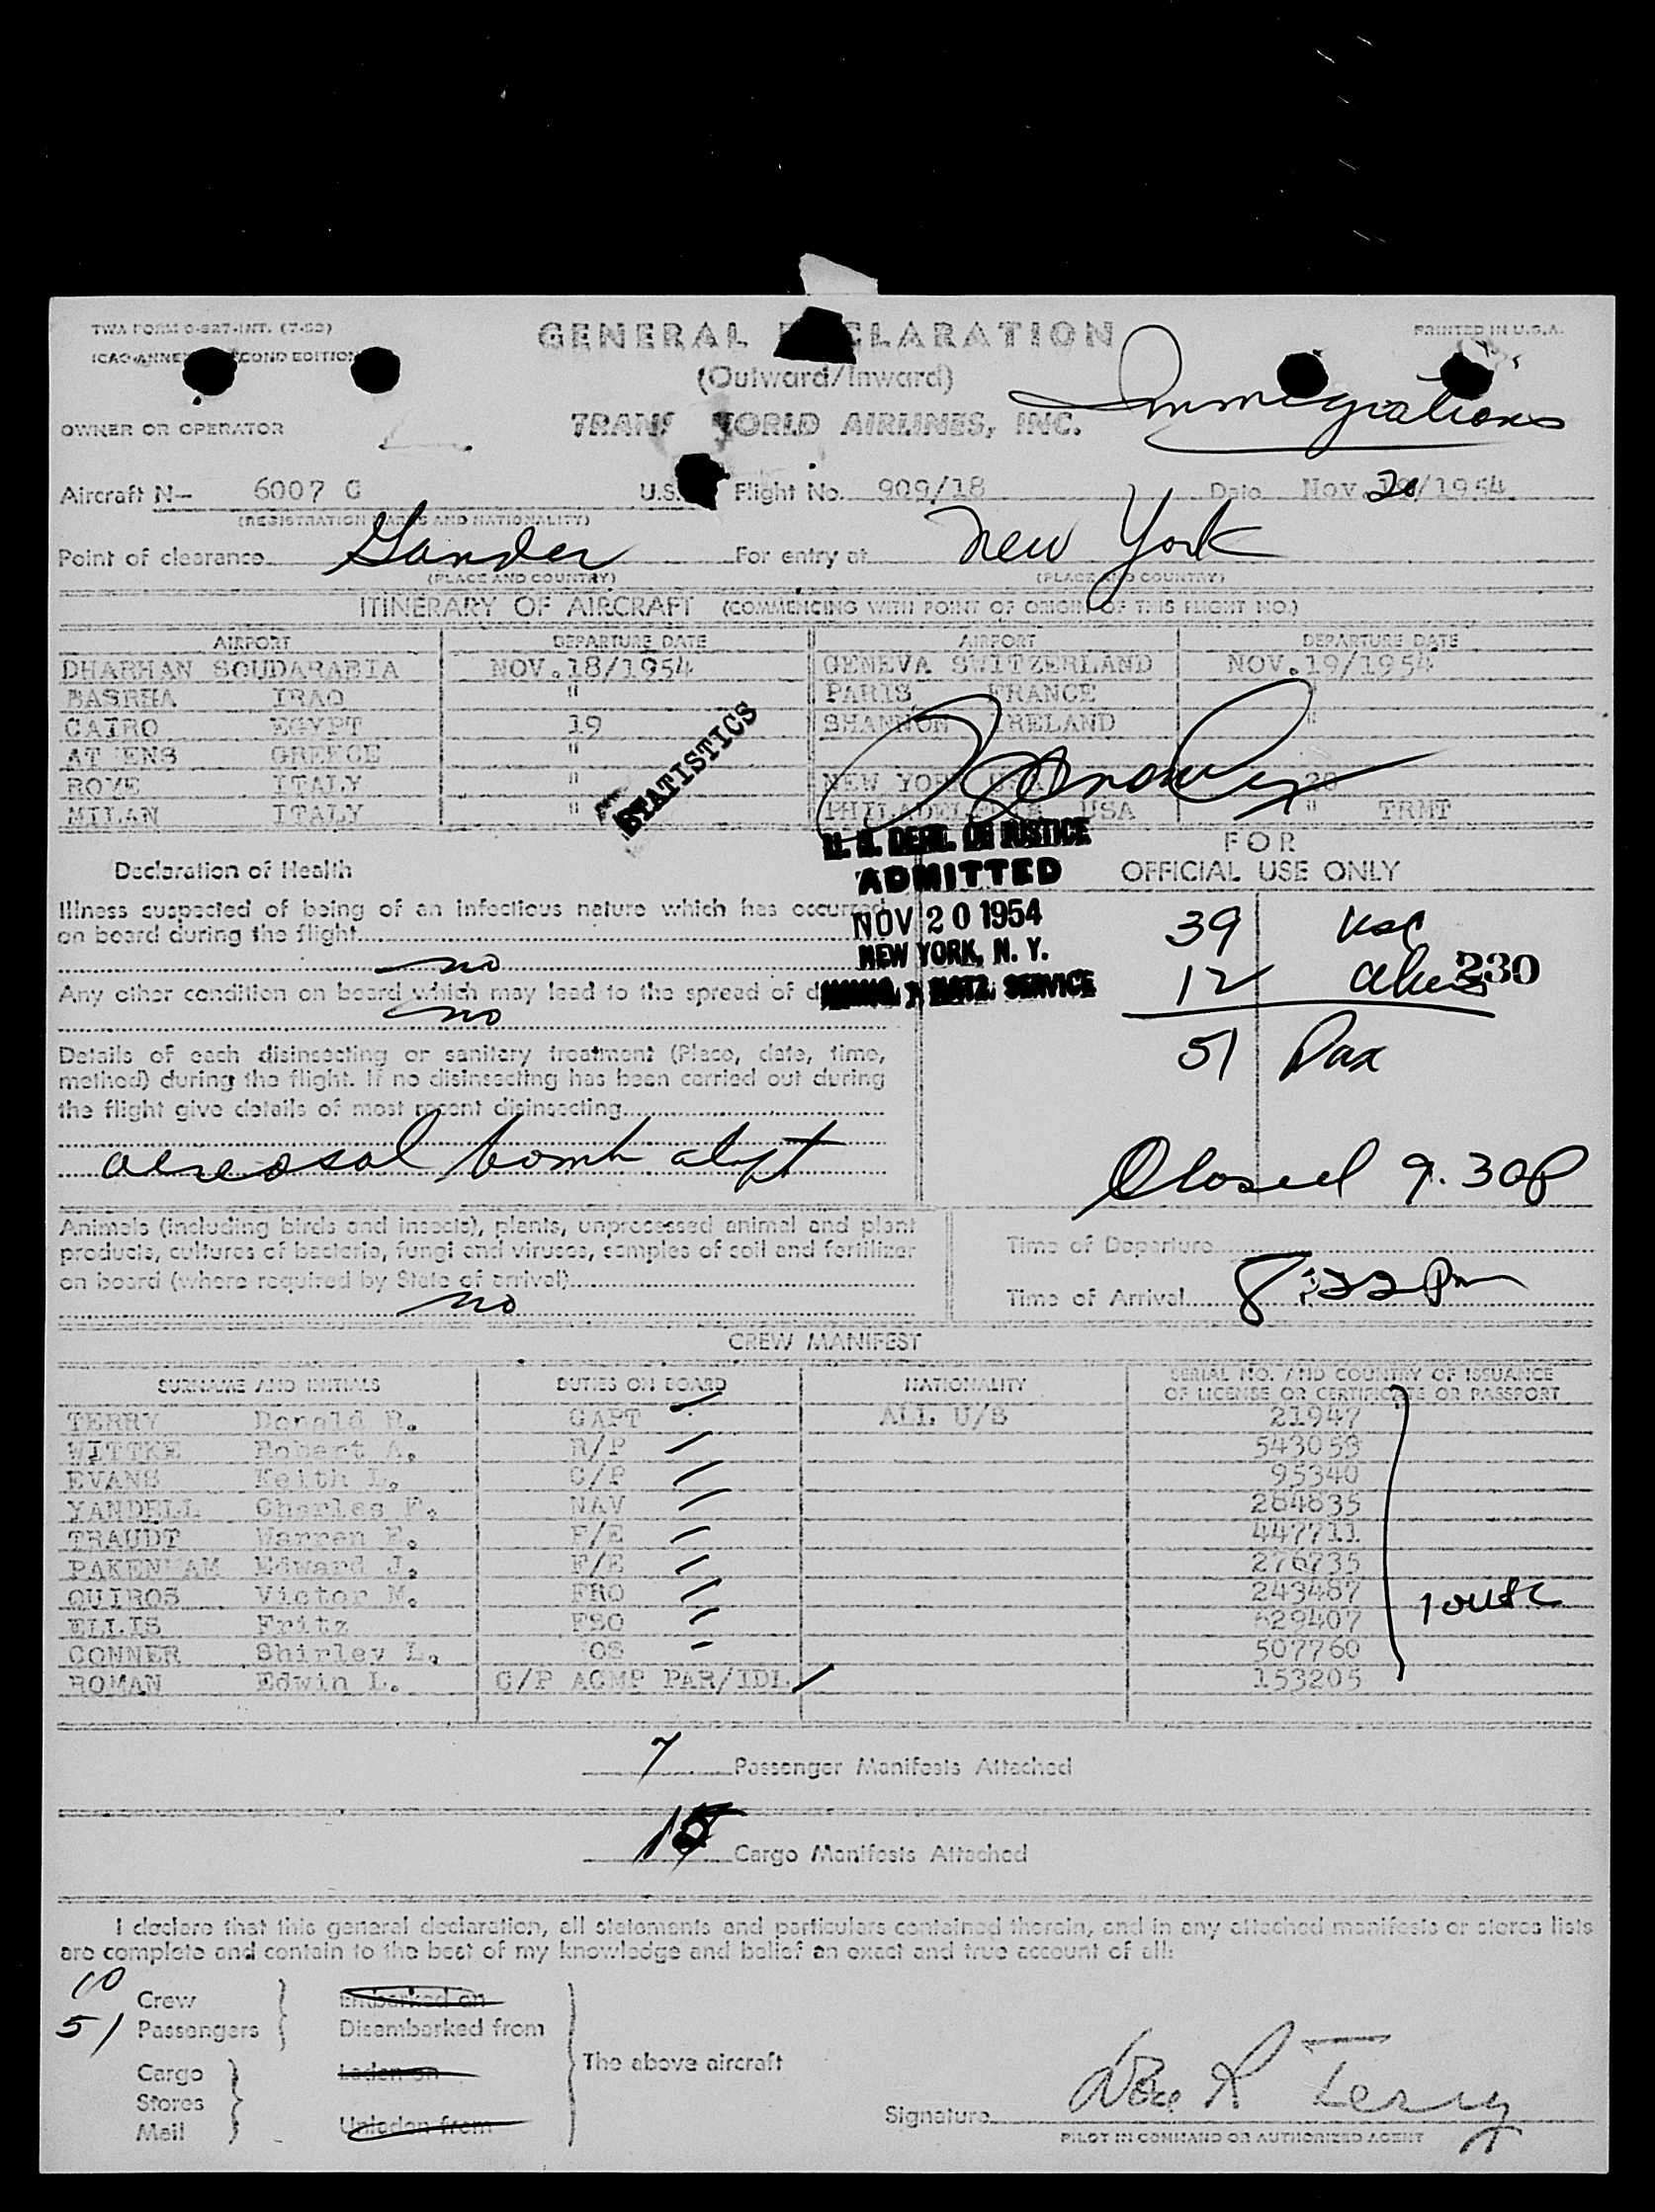 TWA FORM O-927-INT. (7-53)
PRINTED IN U.S.A.
GENERAL CLARATION
ICAO ANNE COND EDITION
(Outward/Inward)
Immigrations
OWNER OR OPERATOR
TRANS WORLD AIRLINES, INC.
Aircraft N— 6007 C U.S. Flight No. 909/18 Date Nov. 20/1954
(REGISTRATION MARKS AND NATIONALITY)
Point of clearance Gander For entry at New York
(PLACE AND COUNTRY) (PLACE AND COUNTRY)
ITINERARY OF AIRCRAFT (COMMENCING WITH POINT OF ORIGIN OF THIS FLIGHT NO.)
AIRPORT DEPARTURE DATE AIRPORT DEPARTURE DATE
DHARHAN SOUDARABIA NOV.18/1954 GENEVA SWITZERLAND NOV.19/1954
BASRHA IRAQ " PARIS FRANCE "
CAIRO EGYPT 19 SHANNON IRELAND "
AT ENS GREECE "
ROME ITALY " NEW YORK USA 20
MILAN ITALY " PHILADELPHIA USA " TRMT
STATISTICS
U. S. DEPT. OF JUSTICE
ADMITTED
NOV 20 1954
NEW YORK, N. Y.
IMMIG. & NATZ. SERVICE
FOR
OFFICIAL USE ONLY
39 USC
12 Aliens
230
51 Pax
Closed 9.30P
Declaration of Health
Illness suspected of being of an infectious nature which has occurred
on board during the flight
no
Any other condition on board which may lead to the spread of d
no
Details of each disinsecting or sanitary treatment (Place, date, time,
method) during the flight. If no disinsecting has been carried out during
the flight give details of most recent disinsecting
aereosal bomb
Animals (including birds and insects), plants, unprocessed animal and plant
products, cultures of bacteria, fungi and viruses, samples of soil and fertilizer
on board (where required by State of arrival)
no
Time of Departure
Time of Arrival 8:22 Pm
CREW MANIFEST
SURNAME AND INITIALS DUTIES ON BOARD NATIONALITY SERIAL NO. AND COUNTRY OF ISSUANCE
OF LICENSE OR CERTIFICATE OR PASSPORT
TERRY Donald R. CAPT ALL U/S 21947
WITTKE Robert A. R/P 543053
EVANS Keith L. C/P 95340
YANDELL Charles F. NAV 284835
TRAUDT Warren F. F/E 447711
PAKENHAM Edward J. F/E 276735
QUIROS Victor M. FRO 243487
ELLIS Fritz FSO 529407
CONNER Shirley L. OS 507760
ROMAN Edwin L. C/P ACMP PAR/IDL 153205
10 USC
7 Passenger Manifests Attached
Cargo Manifests Attached
I declare that this general declaration, all statements and particulars contained therein, and in any attached manifests or stores lists
are complete and contain to the best of my knowledge and belief an exact and true account of all:
10 Crew Embarked on
51 Passengers Disembarked from
The above aircraft
Cargo Laden on
Stores
Mail Unladen from
Signature Don R Terry
PILOT IN COMMAND OR AUTHORIZED AGENT